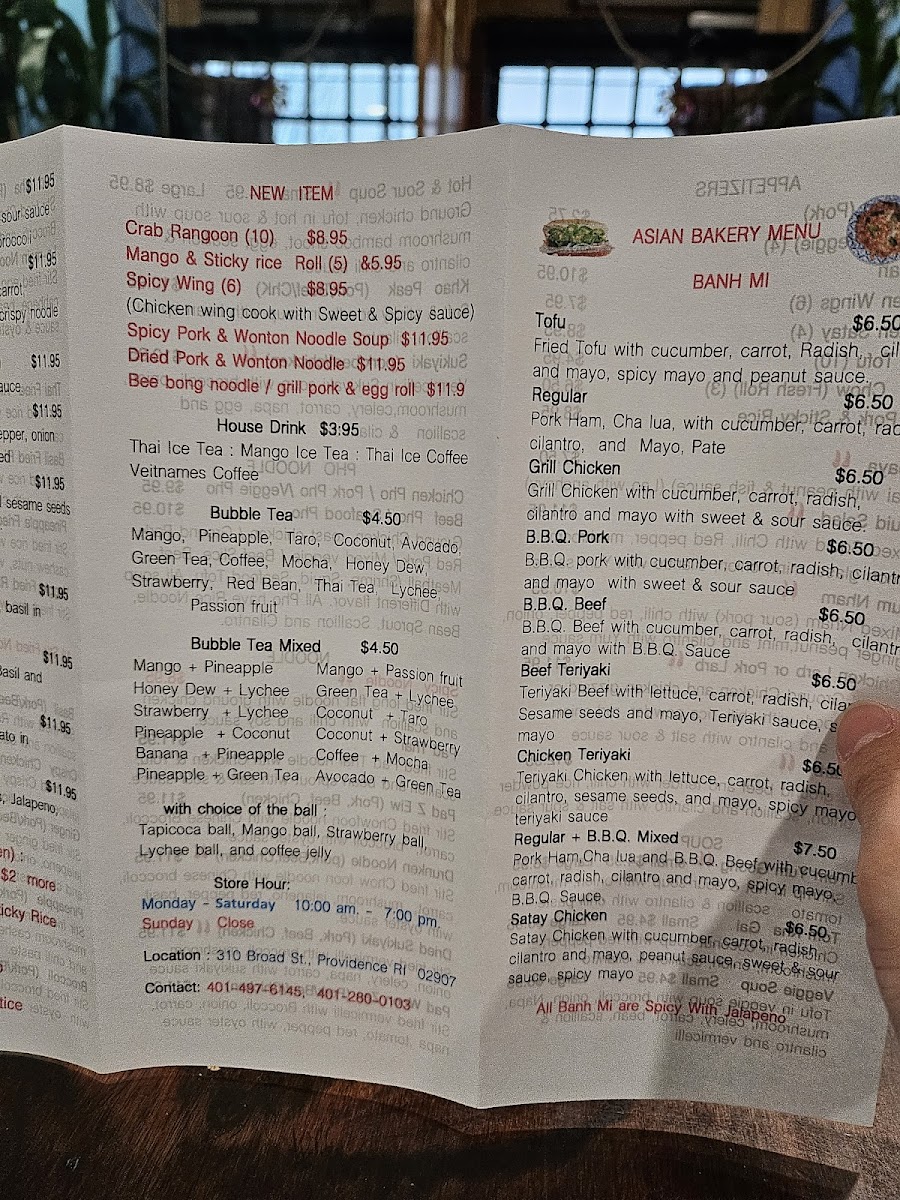 $11.95
sour sauce
broccoli
$11.95
carrot
crispy noodle
$11.95
$11.95
pepper, onion
$11.95
sesame seeds
$11.95
basil in
$11.95
Basil and
$11.95
$11.95
Jalapeno,
$2 more
Sticky Rice
NEW ITEM
Crab Rangoon (10) $8.95
Mango & Sticky rice Roll (5) &5.95
Spicy Wing (6) $8.95
(Chicken wing cook with Sweet & Spicy sauce)
Spicy Pork & Wonton Noodle Soup $11.95
Dried Pork & Wonton Noodle $11.95
Bee bong noodle / grill pork & egg roll $11.9
House Drink $3:95
Thai Ice Tea : Mango Ice Tea : Thai Ice Coffee
Veitnames Coffee
Bubble Tea $4.50
Mango, Pineapple, Taro, Coconut, Avocado,
Green Tea, Coffee, Mocha, Honey Dew,
Strawberry, Red Bean, Thai Tea, Lychee
Passion fruit
Bubble Tea Mixed $4.50
Mango + Pineapple Mango + Passion fruit
Honey Dew + Lychee Green Tea + Lychee
Strawberry + Lychee Coconut + Taro
Pineapple + Coconut Coconut + Strawberry
Banana + Pineapple Coffee + Mocha
Pineapple + Green Tea Avocado + Green Tea
with choice of the ball :
Tapicoca ball, Mango ball, Strawberry ball,
Lychee ball, and coffee jelly
Store Hour:
Monday - Saturday 10:00 am. - 7:00 pm.
Sunday Close
Location : 310 Broad St., Providence RI 02907
Contact: 401-497-6145, 401-280-0103
ASIAN BAKERY MENU
BANH MI
Tofu $6.50
Fried Tofu with cucumber, carrot, Radish, cil
and mayo, spicy mayo and peanut sauce.
Regular $6.50
Pork Ham, Cha lua, with cucumber, carrot, rad
cilantro, and Mayo, Pate
Grill Chicken $6.50
Grill Chicken with cucumber, carrot, radish,
cilantro and mayo with sweet & sour sauce.
B.B.Q. Pork $6.50
B.B.Q. pork with cucumber, carrot, radish, cilant
and mayo with sweet & sour sauce
B.B.Q. Beef $6.50
B.B.Q. Beef with cucumber, carrot, radish, cilant
and mayo with B.B.Q. Sauce
Beef Teriyaki $6.50
Teriyaki Beef with lettuce, carrot, radish, cila
Sesame seeds and mayo, Teriyaki sauce, s
mayo
Chicken Teriyaki $6.50
Teriyaki Chicken with lettuce, carrot, radish,
cilantro, sesame seeds, and mayo, spicy mayo
teriyaki sauce
Regular + B.B.Q. Mixed $7.50
Pork Ham,Cha lua and B.B.Q. Beef with cucumb
carrot, radish, cilantro and mayo, spicy mayo,
B.B.Q. Sauce
Satay Chicken $6.50
Satay Chicken with cucumber, carrot, radish
cilantro and mayo, peanut sauce, sweet & sour
sauce, spicy mayo
All Banh Mi are Spicy With Jalapeno